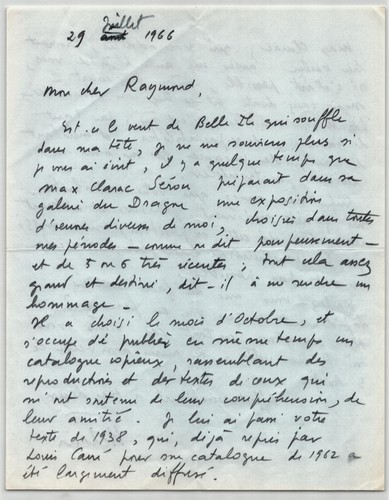 Juillet
29 août 1966
Mon cher Raymond,
Est-ce le vent de Belle Ile qui souffle
dans ma tête, je ne me souviens plus si
je vous ai écrit, il y a quelque temps que
Max Clarac Sérou préparait dans sa
galerie du Dragon une exposition
d'œuvres diverses de moi, choisies dans toutes
mes périodes — comme on dit pompeusement —
et de 5 ou 6 très récentes ; tout cela assez
grand et destiné, dit-il à me rendre un
hommage —
Il a choisi le mois d'Octobre, et
s'occupe de publier en même temps un
catalogue copieux, rassemblant des
reproductions et des textes de ceux qui
m'ont soutenu de leur compréhension, de
leur amitié. Je lui ai passé votre
texte de 1938, qui, déjà repris par
Louis Carré pour son catalogue de 1962 a
été largement diffusé.